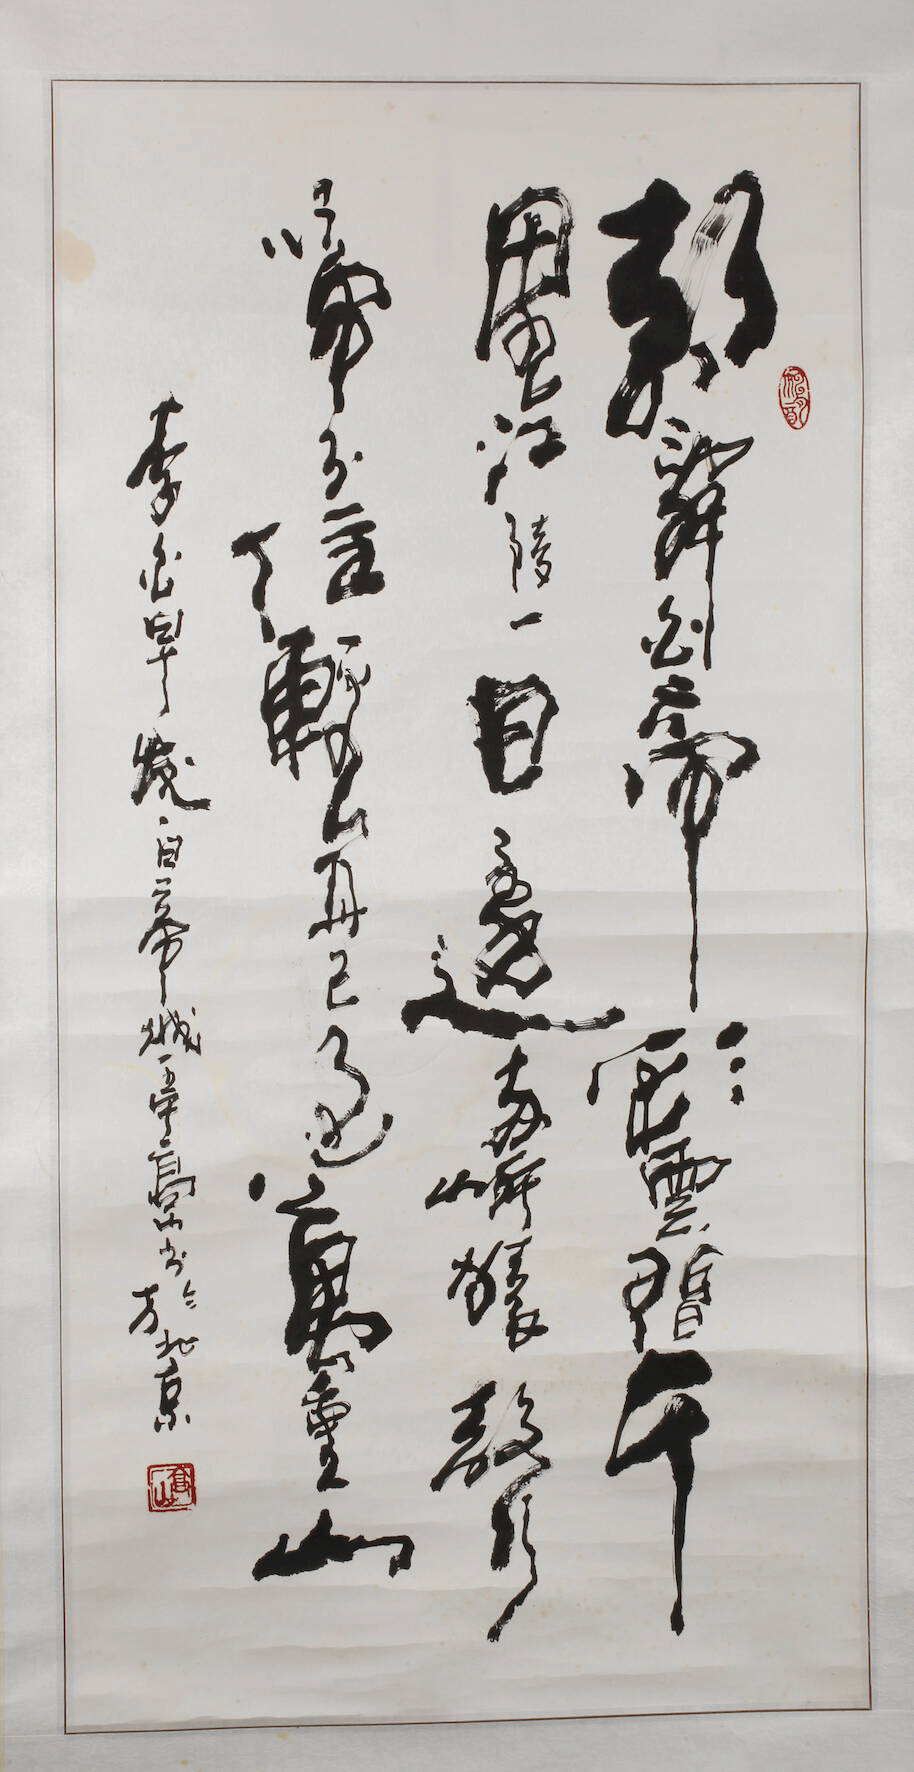 朝辭白帝彩雲間千
里江陵一日還兩岸猿聲
啼不住輕舟已過萬重山
李白早發白帝城一章高山书於北京
高山